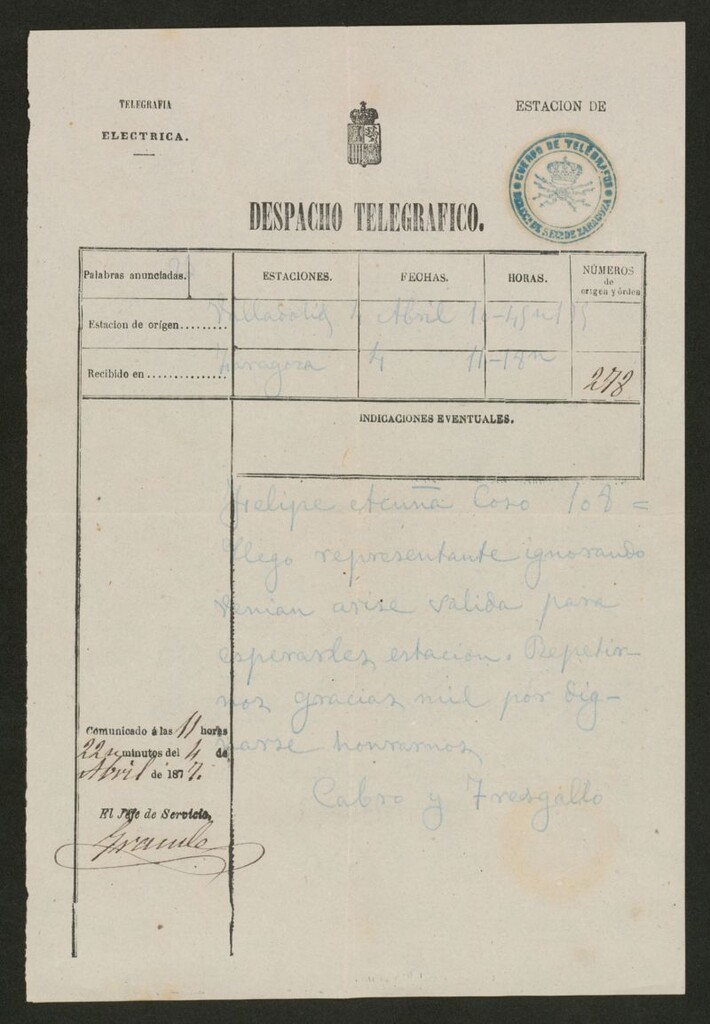 TELEGRAFIA
ELECTRICA.
ESTACION DE
CUERPO DE TELÉGRAFOS
DE ZARAGOZA
DESPACHO TELEGRAFICO.
Palabras anunciadas.
ESTACIONES.
FECHAS.
HORAS.
NÚMEROS
de
origen y órden
Estacion de orígen.........
Valladolid 4 Abril
Recibido en ...............
Zaragoza 4 11-18
278
INDICACIONES EVENTUALES.
Felipe Acuña Coso 108 =
Llego representante ignorando
venian avise salida para
esperarles estacion. Repetir-
nos gracias mil por dig-
narse honrarnos
Calvo y Fresgallo
Comunicado á las 11 horas
22 minutos del 4 de
Abril de 1877.
El Jefe de Servicio,